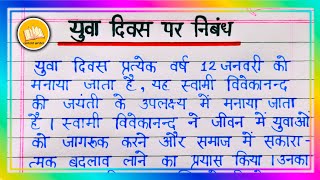 युवा दिवस पर निबंध
युवा दिवस प्रत्येक वर्ष 12 जनवरी को
मनाया जाता है, यह स्वामी विवेकानन्द
की जयंती के उपलक्ष्य में मनाया जाता
है । स्वामी विवेकानन्द ने जीवन में युवाओं
को जागरूक करने और समाज में सकारा-
त्मक बदलाव लाने का प्रयास किया ।उनका